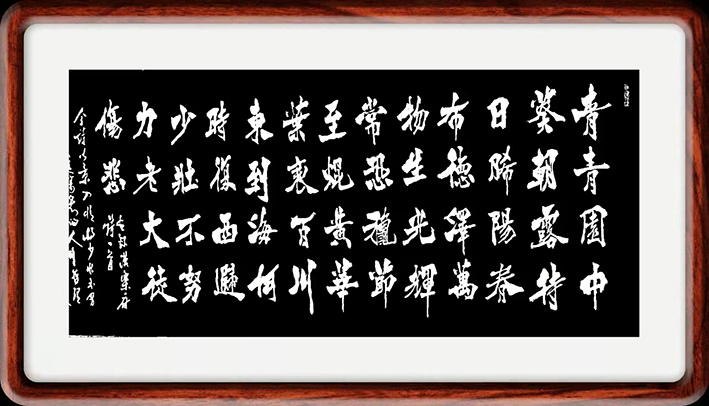 青青園中
葵朝露待
日晞陽春
布德澤萬
物生光輝
常恐穐節
至焜黃華
葉衰百川
東到海何
時復西歸
少壯不努
力老大徒
傷悲
漢樂府
詩一首